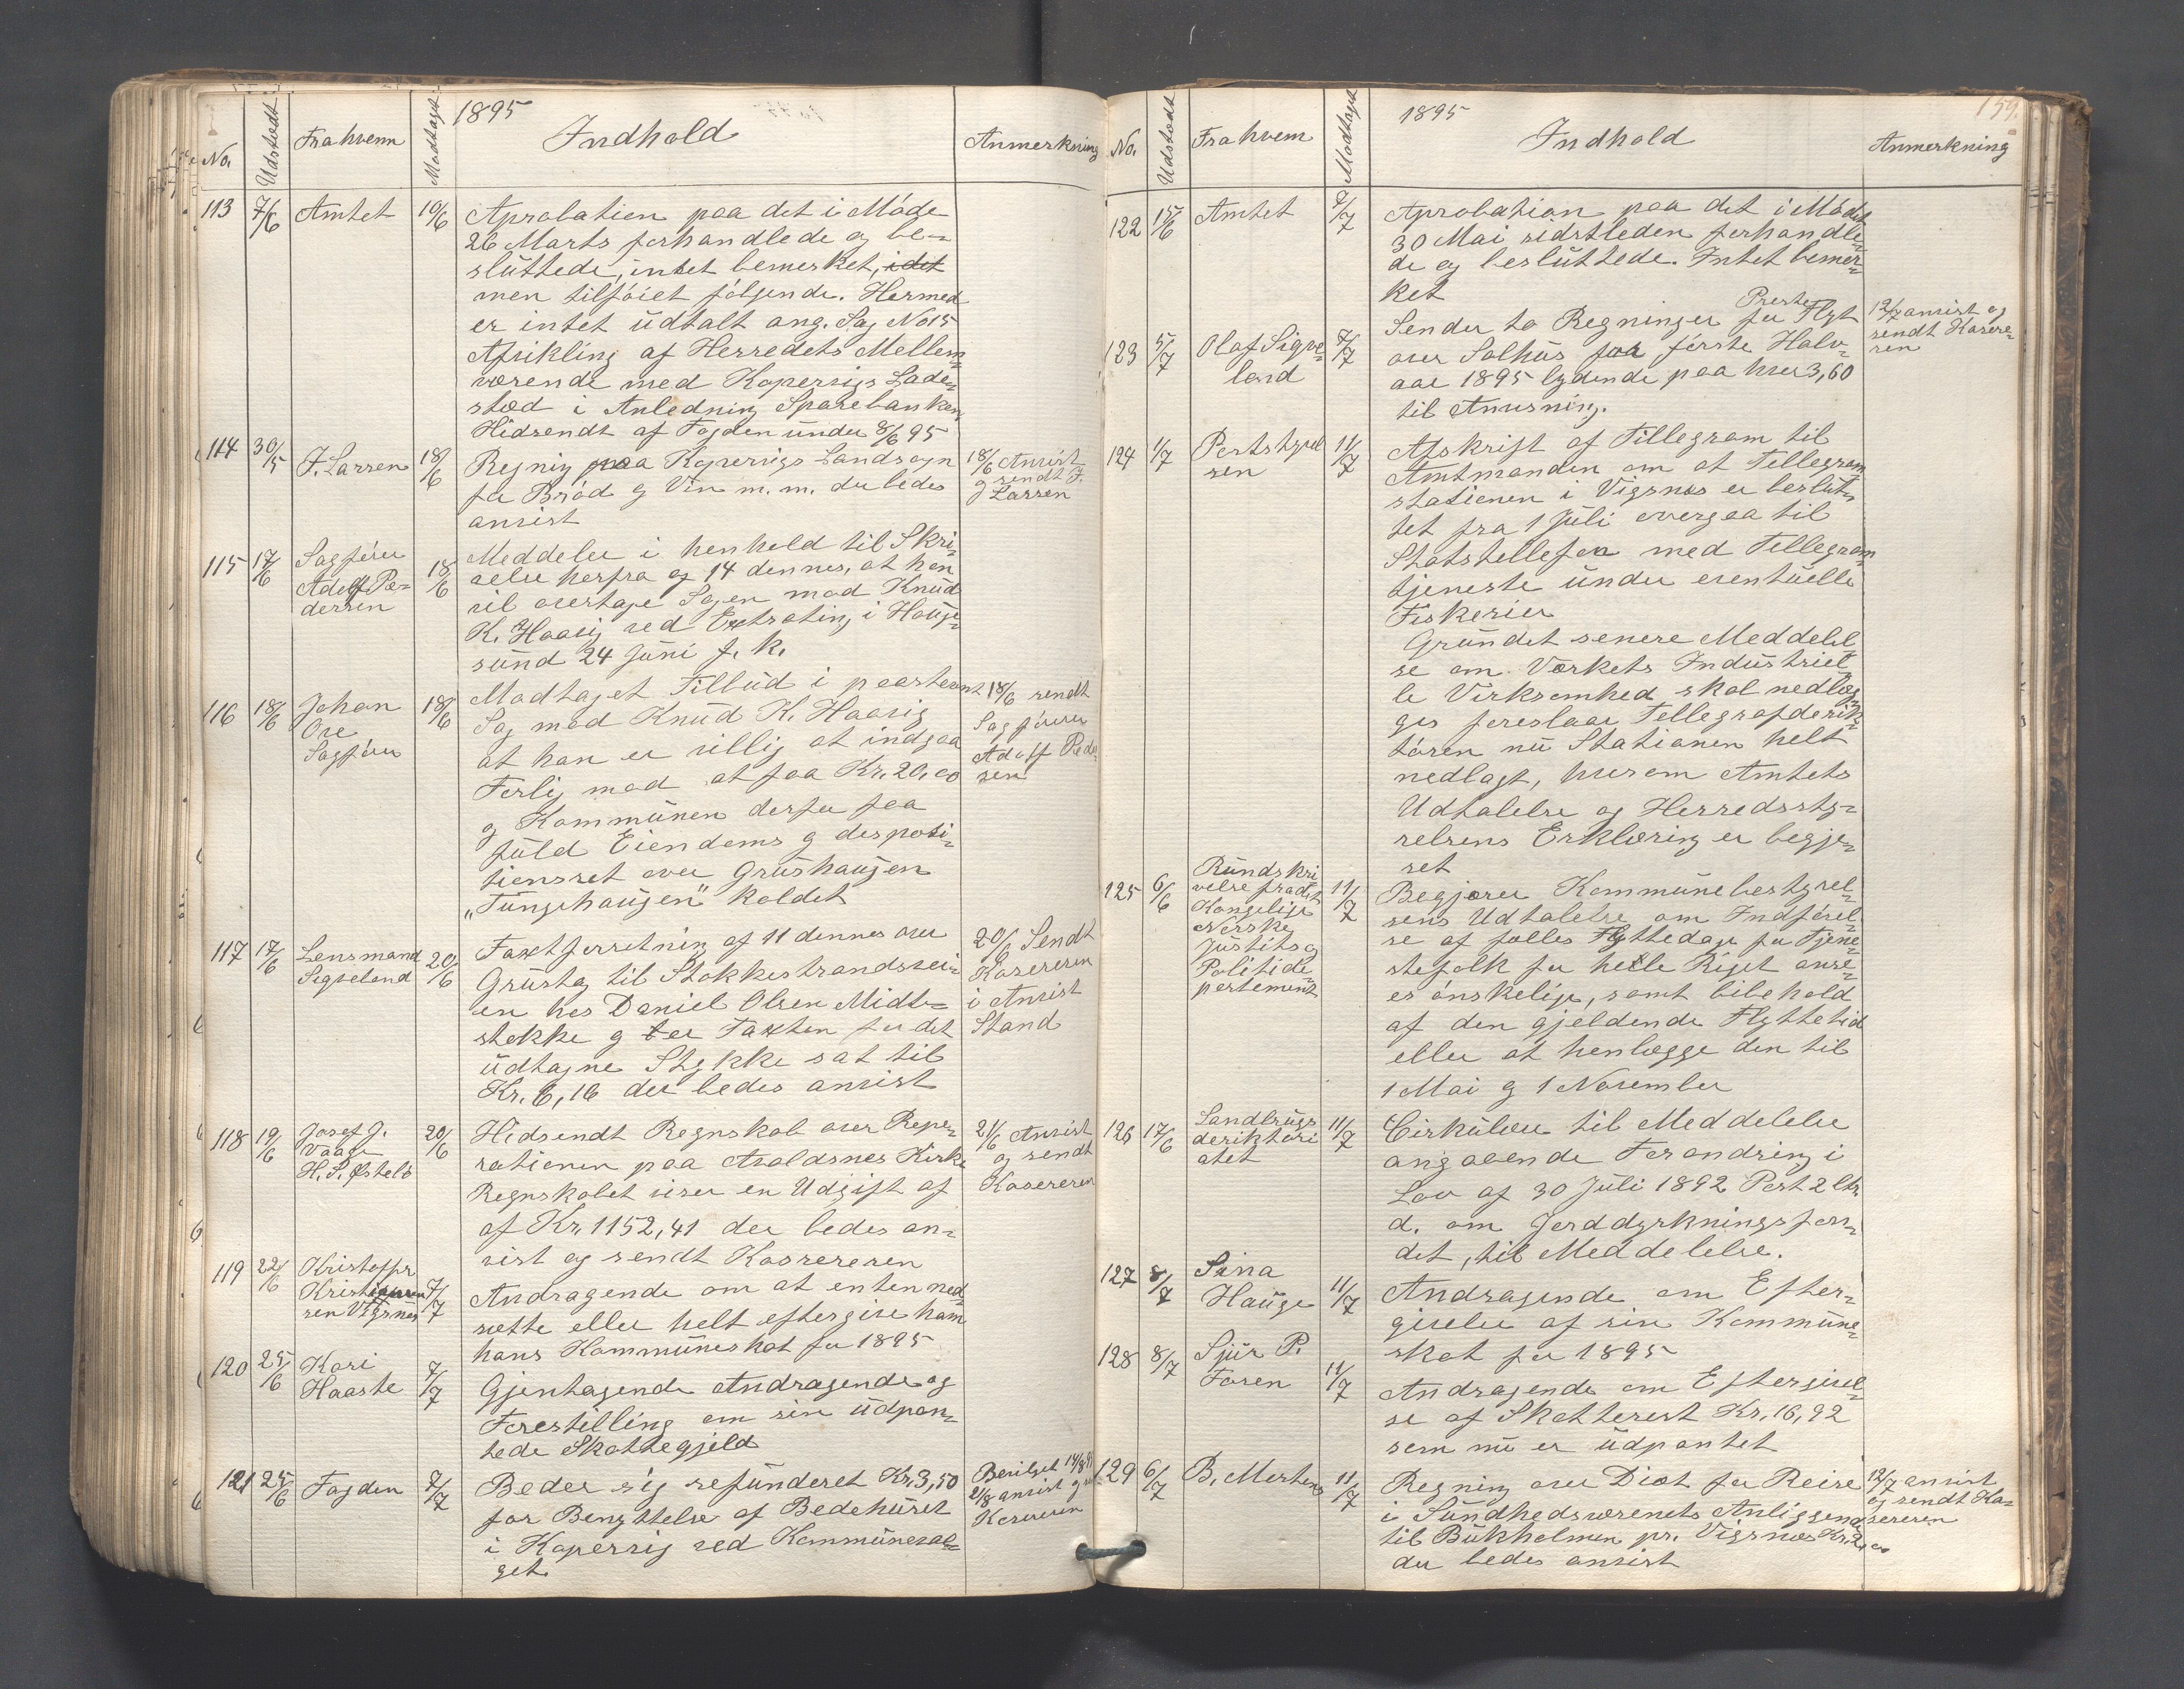 1895
No. Udstedt Fra hvem Modtaget Indhold Anmerkning
113 7/6 Amtet 10/6 Aprobation paa det i Møde
26 Marts forhandlede og be-
sluttede, intet bemerket, idet
men tilføiet følgende. Hermed
er intet udtalt ang. Sag No 15
Afvikling af Herredets Mellem-
værende med Kopervigs Lade-
sted i Anledning Sparebanken
Hidsendt af Fogden under 8/6 95
114 30/5 J. Larsen 18/6 Regning paa Kopervigs Landsogn
for Brød og Vin m. m. der bedes
anvist
18/6 Anvist
og sendt J.
Larsen
115 17/6 Sagfører
Adolf Pe-
dersen
18/6 Meddeler i henhold til Skri-
velse herfra af 14 dennes, at han
vil overtage Sagen mod Knud
K. Haavig ved Extrating i Hauge-
sund 24 Juni f. k.
116 18/6 Johan
Ore
Sagfører
18/6 Modtaget Tilbud i paastevnt
Sag mod Knud K. Haavig
at han er villig at indgaa
Forlig mod at faa Kr. 20,00
og Kommunen derfor faa
fuld Eiendoms og desposi-
tionsret over Grushaugen
„Tungehaugen" kaldet
18/6 sendt
Sagfører
Adolf Peder-
sen
117 17/6 Lensmand
Sigveland
20/6 Taxtforretning af 11 dennes over
Grustag til Stokkestrandsvei-
en hos Daniel Olsen Midt-
stokke og er Taxten for det
udtagne Stykke sat til
Kr. 6,16 der bedes anvist
20/6 Sendt
Kasereren
i Anvist
Stand
118 19/6 Josef J.
Vaage
H. S. Østebø
20/6 Hidsendt Regnskab over Repe-
rationen paa Avaldsnes Kirke
Regnskabet viser en Udgift af
af Kr. 1152,41 der bedes an-
vist og sendt Kassereren
21/6 Anvist
og sendt
Kasereren
119 22/6 Kristoffer
Kristiansen
sen Vigsnes
7/7 Andragende om at enten ned-
sætte eller helt eftergive ham
hans Kommuneskat for 1895
120 25/6 Kari
Haaste
7/7 Gjentagende Andragende og
Forestilling om sin udpan-
tede Skattegjeld
121 25/6 Fogden 7/7 Beder sig refunderet Kr. 3,50
for Benyttelse af Bedehuset
i Kopervig ved Kommuneval-
get
Bevilget 14/8
21/8 anvist og
Kasereren
159.
1895
No. Udstedt Fra hvem Modtaget Indhold Anmerkning
122 15/6 Amtet 2/7 Aprobation paa det i Mødet
30 Mai sidstleden forhandle-
de og besluttede. Intet bemer-
ket
123 5/7 Olaf Sigve-
land
7/7 Sender to Regninger for Preste Flyt
over Salhus for første Halv-
aar 1895 lydende paa hver 3,60
til Anvisning.
12/7 anvist og
sendt Kasere-
ren
124 1/7 Poststyrel
sen
11/7 Afskrift af Tillegram til
Amtmanden om at Tellegram-
stationen i Vigsnes er beslut-
tet fra 1 Juli overgaa til
Statstellefon med Tellegram-
tjeneste under eventuelle
Fiskerier
Grundet senere Meddelel-
se om Værkets Industriel-
le Virksomhed skal nedlæg-
ges foreslaar Tellegrafderik-
tøren nu Stationen helt
nedlagt, hvorom Amtets
Udtalelse og Herredssty-
relsens Erklæring er begjæ-
ret
125 6/6 Rundskri
velse fra det
Kongelige
Norske
Justits og
Politide-
partement
11/7 Begjærer Kommunebestyrel-
sens Udtalelse om Indførel-
se af fælles Flyttedage for Tjene-
stefolk for hele Riget anse-
es ønskelige, samt bibehold
af den gjeldende Flyttetid
eller at henlægge den til
1 Mai og 1 November
126 17/6 Landbrugs
deriktøri
atet
11/7 Cirkulære til Meddelelse
angaaende Forandring i
Lov af 30 Juli 1892 Post 2 Ltr.
d. om Jorddyrkningsfon-
det, til Meddelelse.
127 8/7 Sina
Hauge
11/7 Andragende om Efter-
givelse af sin Kommune-
skat for 1895
128 8/7 Sjur P.
Føsen
11/7 Andragende om Eftergivel-
se af Skatterest Kr. 16,92
som nu er udpantet
129 6/7 B. Mertens 11/7 Regning over Diæt for Reise
i Sundhedsvæsenets Anliggende
til Bukholmen pr. Vigsnes Kr. 2,00
der bedes anvist
12/7 anvist
og sendt Ka-
sereren